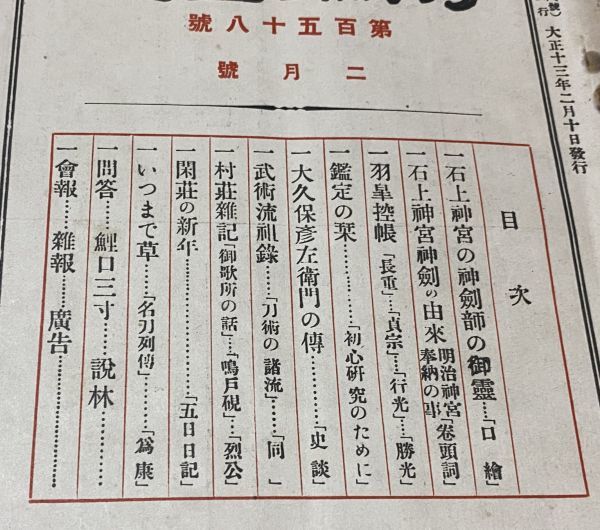 第百五十八號
二月號
大正十三年二月十日發行
目次
一石上神宮の神劍師の御靈……「口繪」
一石上神宮神劍の由來 明治神宮奉納の事「卷頭詞」
一羽皐控帳「長重」…「貞宗」…「行光」…「勝光」
一鑑定の栞…………「初心研究のために」
一大久保彦左衛門の傳…………「史談」
一武術流祖錄………「刀術の諸流」…「同」
一村莊雜記「御歌所の話」…「鳴戸硯」…「烈公」
一閑莊の新年………………「五日日記」
一いつまで草……「名刀列傳」………「爲康」
一問答……鯉口三寸……說林……………
一會報……雜報……廣告……………